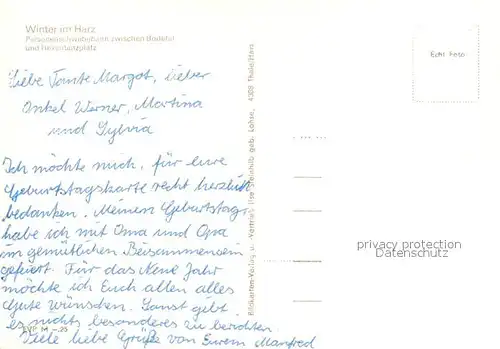 Winter im Harz
Personenschwebebahn zwischen Bodetal
und Hexentanzplatz
Echt Foto
Liebe Tante Margot, lieber
Onkel Werner, Martina
und Sylvia
Ich möchte mich, für eure
Geburtstagskarte recht herzlich
bedanken. Meinen Geburtstag
habe ich mit Oma und Opa
im gemütlichen Beisammensein
gefeiert. Für das Neue Jahr
möchte ich Euch allen alles
Gute wünschen. Sonst gibt
es nichts besonderes zu berichten.
Viele liebe Grüße von Eurem Manfred
EVP M -,25
Bildkarten-Verlag u. Vertrieb Ilse Steinhilb geb. Lohse, 4308 Thale/Harz
privacy protection
Datenschutz